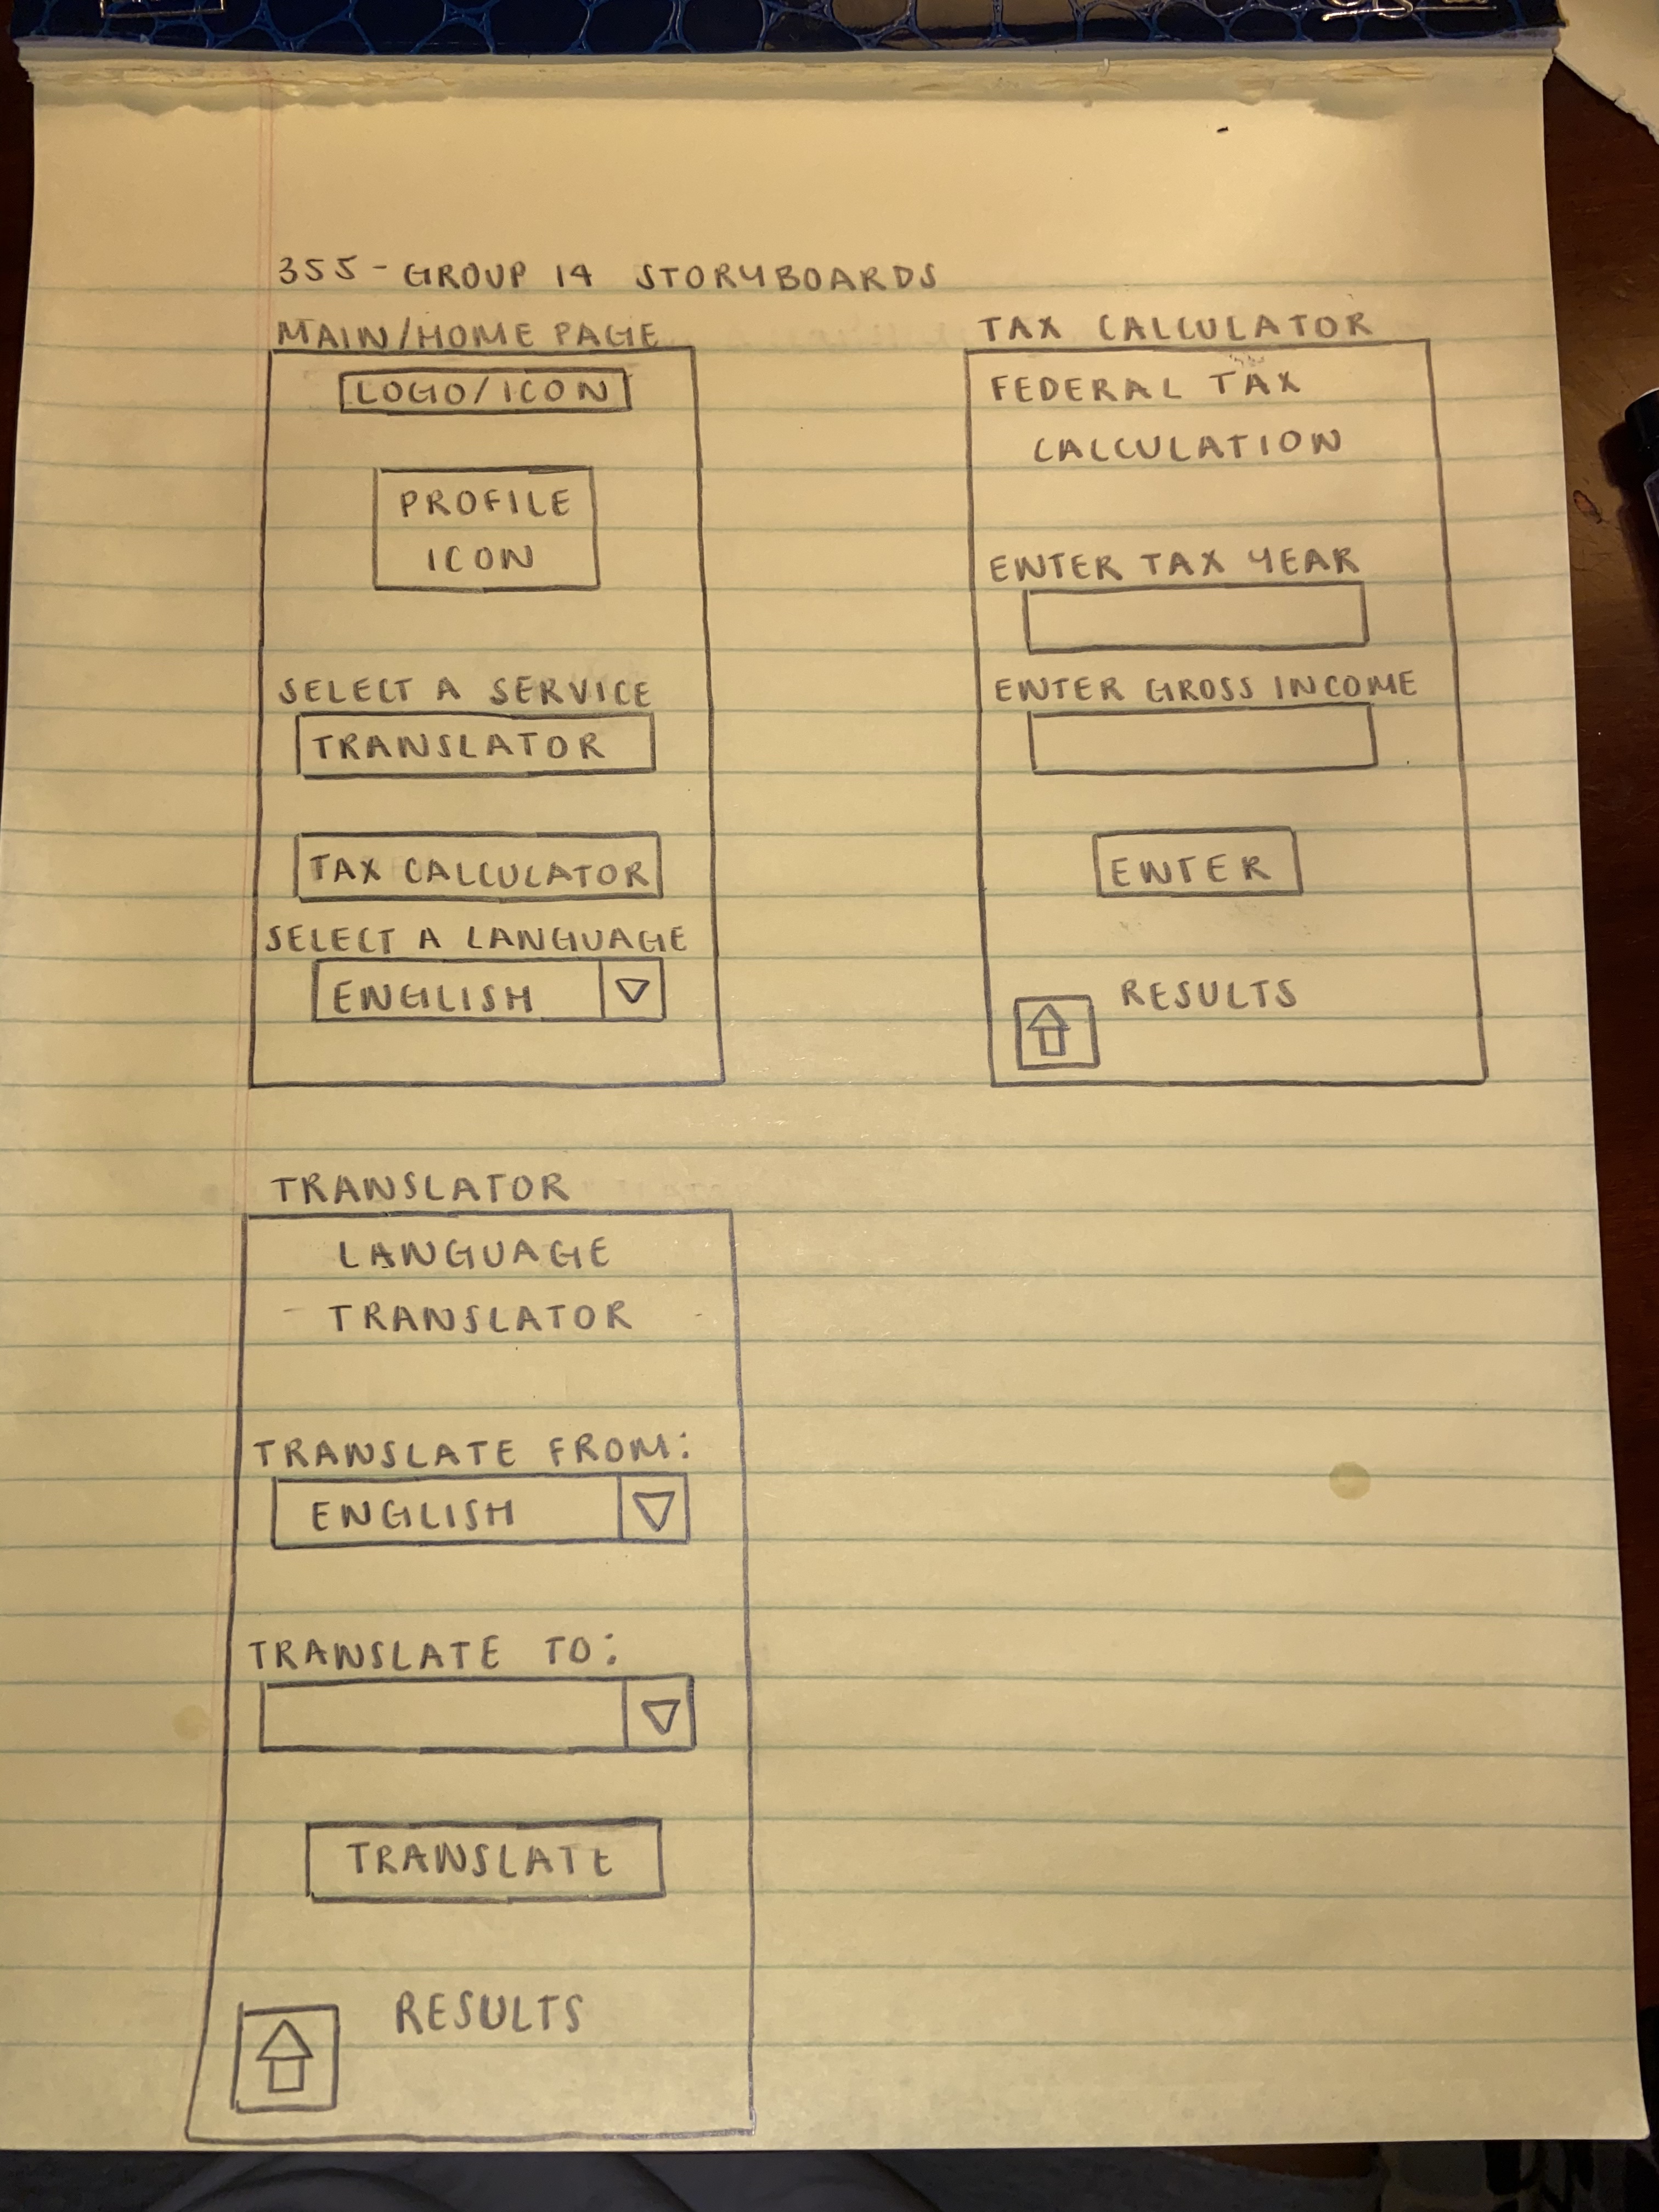 355 - GROUP 14 STORYBOARDS
MAIN/HOME PAGE
LOGO/ICON
PROFILE
ICON
SELECT A SERVICE
TRANSLATOR
TAX CALCULATOR
SELECT A LANGUAGE
ENGLISH
TAX CALCULATOR
FEDERAL TAX
CALCULATION
ENTER TAX YEAR
ENTER GROSS INCOME
ENTER
RESULTS
TRANSLATOR
LANGUAGE
TRANSLATOR
TRANSLATE FROM:
ENGLISH
TRANSLATE TO:
TRANSLATE
RESULTS